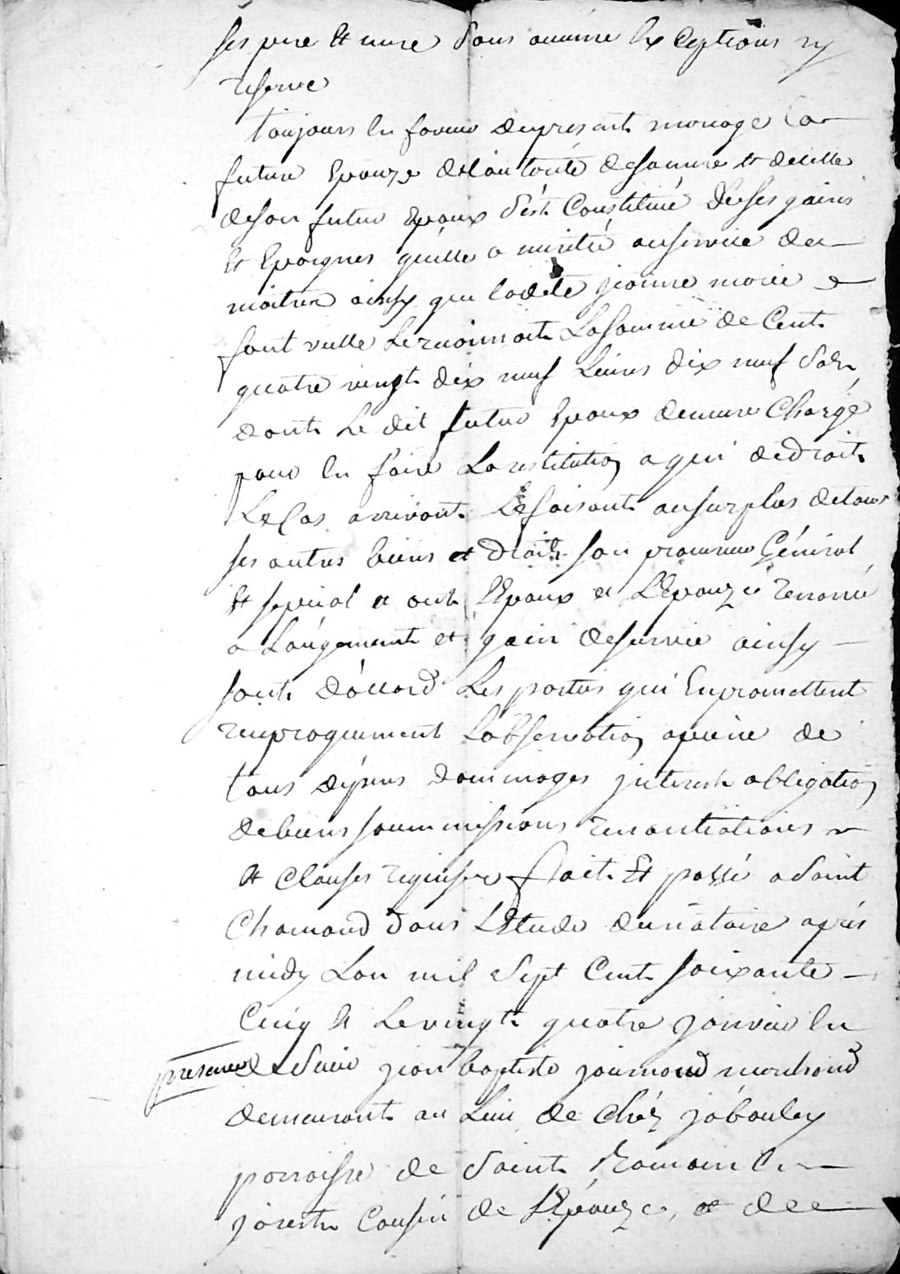 ses pere et mere sans aucune exceptions ny
reserve
toujours en faveur du present mariage la
future Epouze de l'autorité de sa mere et de celle
de son futur Epoux s'est Constitué de ses gains
Et Epargnes qu'elle a mérité au service de
maitres ainsy que ladite jeanne marie
font vielle Le reconnoit La somme de Cent
quatre vingt dix neuf Livres dix neuf sols
dont Le dit futur Epoux demeure Chargé
pour en faire La restitution a qui de droit
Le Cas arrivant Le faisant au surplus de tous
ses autres biens et droits son procureur Général
Et special et ont L'Epoux et L'Epouze renoncé
a L'augement et gain de survie ainsy
sont d'accord Les parties qui En promettent
reciproquement L'observation a peine de
tous dépens dommages interests obligation
de biens soummissions renontiations
et clauses requises fait Et passé a Saint
Chamond dans L'Etude du notaire après
midy L'an mil sept Cent soixante
Cinq et Le vingt quatre janvier En
presence de Sieur jean baptiste marchand
demeurant au Lieu de chéz jabouley
parroisse de Saint Romain En
jarest Cousin de L'Epouze, et de